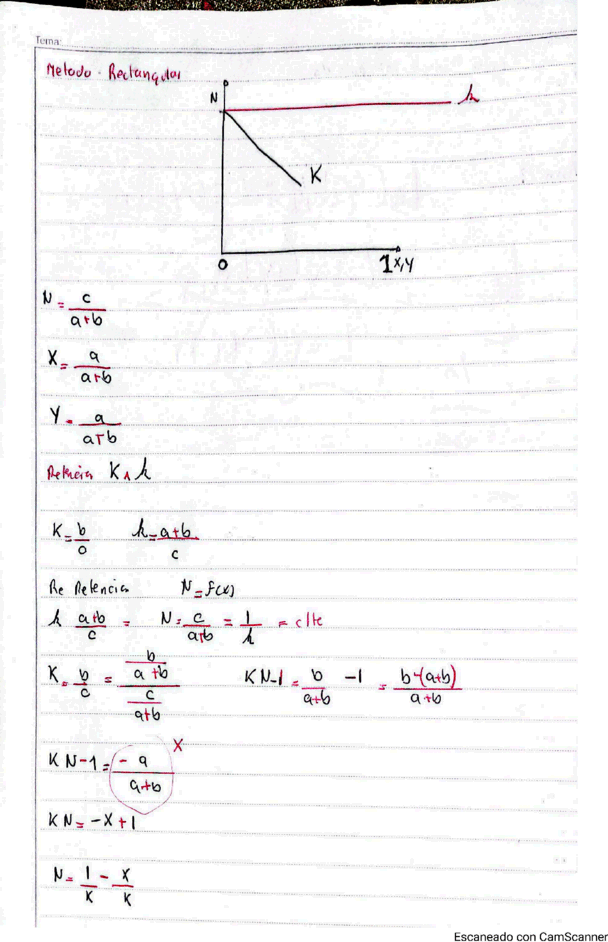 Tema:
Metodo. Rectangular
N
h
K
0
1 X,Y
N = c/(a+b)
X = a/(a+b)
Y = a/(a+b)
Retencia K ∧ h
K = b/0    h = (a+b)/c
Re Retencia    N = f(x)
h (a+b)/c =    N = c/(a+b) = 1/h = cte
K = b/c = (b/(a+b))/(c/(a+b))    KN-1 = b/(a+b) -1 = (b-(a+b))/(a+b)
KN-1 = (-a)/(a+b)  X
KN = -X+1
N = 1/K - X/K
Escaneado con CamScanner